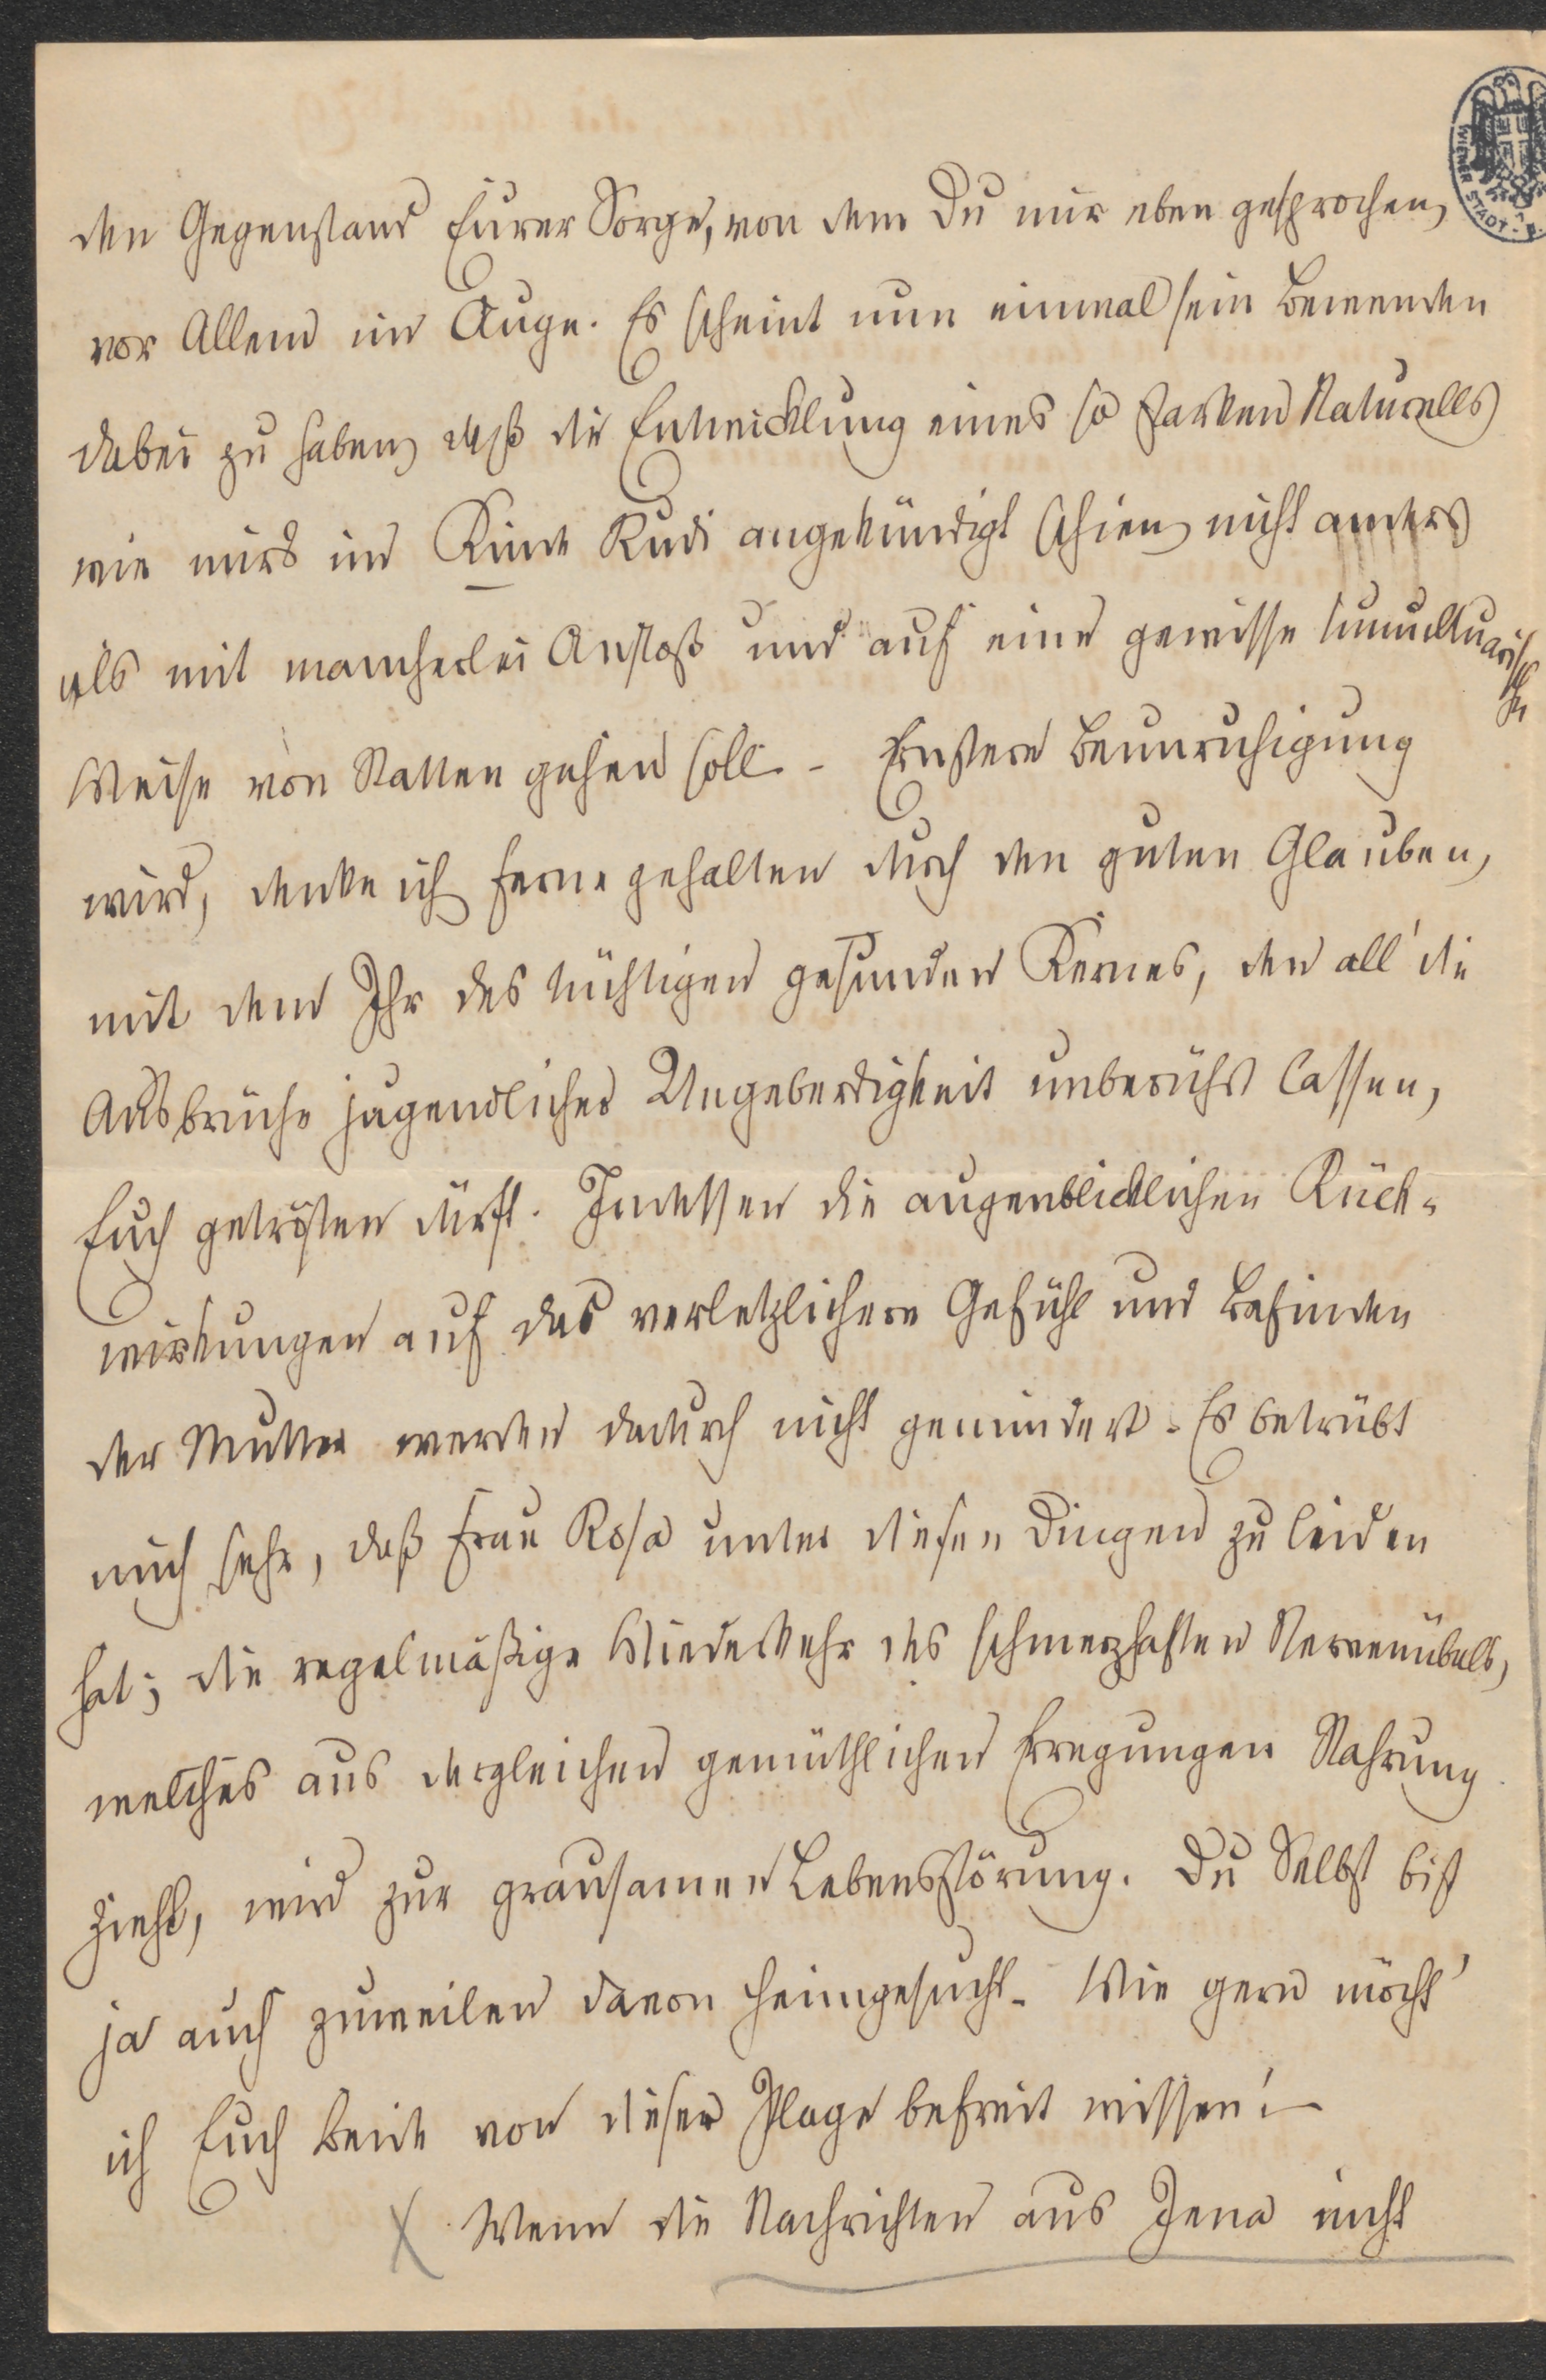 den Gegenstand Eurer Sorge, von dem Du mir eben gesprochen,
vor Allem im Auge. Es scheint nun einmal sein Bewenden
dabei zu haben, daß die Entwicklung eines so starken Naturells
wie mirs im Kinde Rudi angekündigt schien, nicht anders
als mit mancherlei Anstoß und auf eine gewisse tumultuarische
Weise von Statten gehen soll. – Ernstere Beunruhigung
wird, denke ich, ferne gehalten durch den guten Glauben,
mit dem Ihr des tüchtigen gesunden Kernes, den all' die
Ausbrüche jugendlicher Ungeberdigkeit unberührt lassen,
Euch getrösten dürft. Indessen die augenblicklichen Rück-
wirkungen auf das verletzlichere Gefühl und Befinden
der Mutter werden dadurch nicht gemindert. Es betrübt
mich sehr, daß Frau Rosa unter diesen Dingen zu leiden
hat; die regelmäßige Wiederkehr des schmerzhaften Nervenübels,
welches aus dergleichen gemüthlichen Erregungen Nahrung
zieht, wird zur grausamen Lebensstörung. Du Selbst bist
ja auch zuweilen davon heimgesucht. Wie gern möcht'
ich Euch beide von dieser Plage befreit wissen! –
X Wenn die Nachrichten aus Jena nicht
WIENER STADT-B.